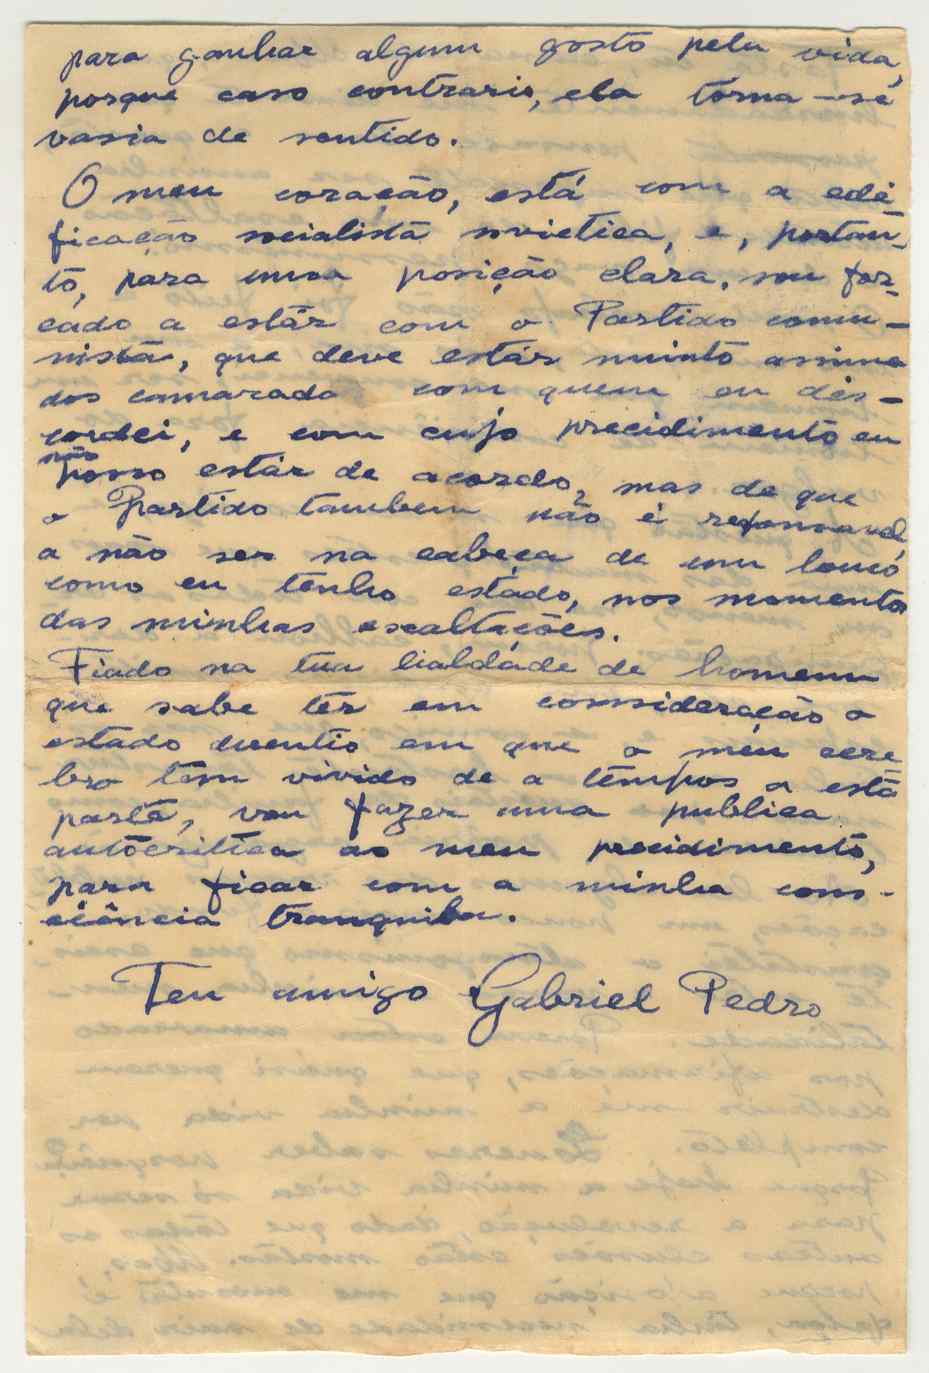 para ganhar algum gosto pela vida,
porque caso contrario, ela torna-se
vasia de sentido.
O meu coração, está com a edi
ficação socialista sovietica, e, portan-
tò, para uma posição clara, sou for-
çado a estár com o Partido comu-
nista, que deve estár muintò assima
dos camarada com quem eu dés-
cordei, e com cujo precidimento eu
não posso estár de acordo, mas de que
o Partido tambem não é responsavel,
a não ser na cabeça de um louco
como eu tenho estádo, nos momentos
das minhas escaltações.
Fiado na tua lialdáde de homem
que sabe ter em consideração o
estado duentio em que o meu cere
bro tem vivido de a tempos a está
parte, vou fazer uma publica
autòcritica ao meu precidimentò,
para ficar com a minha cons-
ciência tranquila.
Teu amigo Gabriel Pedro